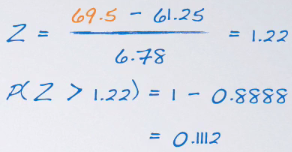 Z = (69.5 - 61.25) / 6.78 = 1.22
P(Z > 1.22) = 1 - 0.8888
= 0.1112